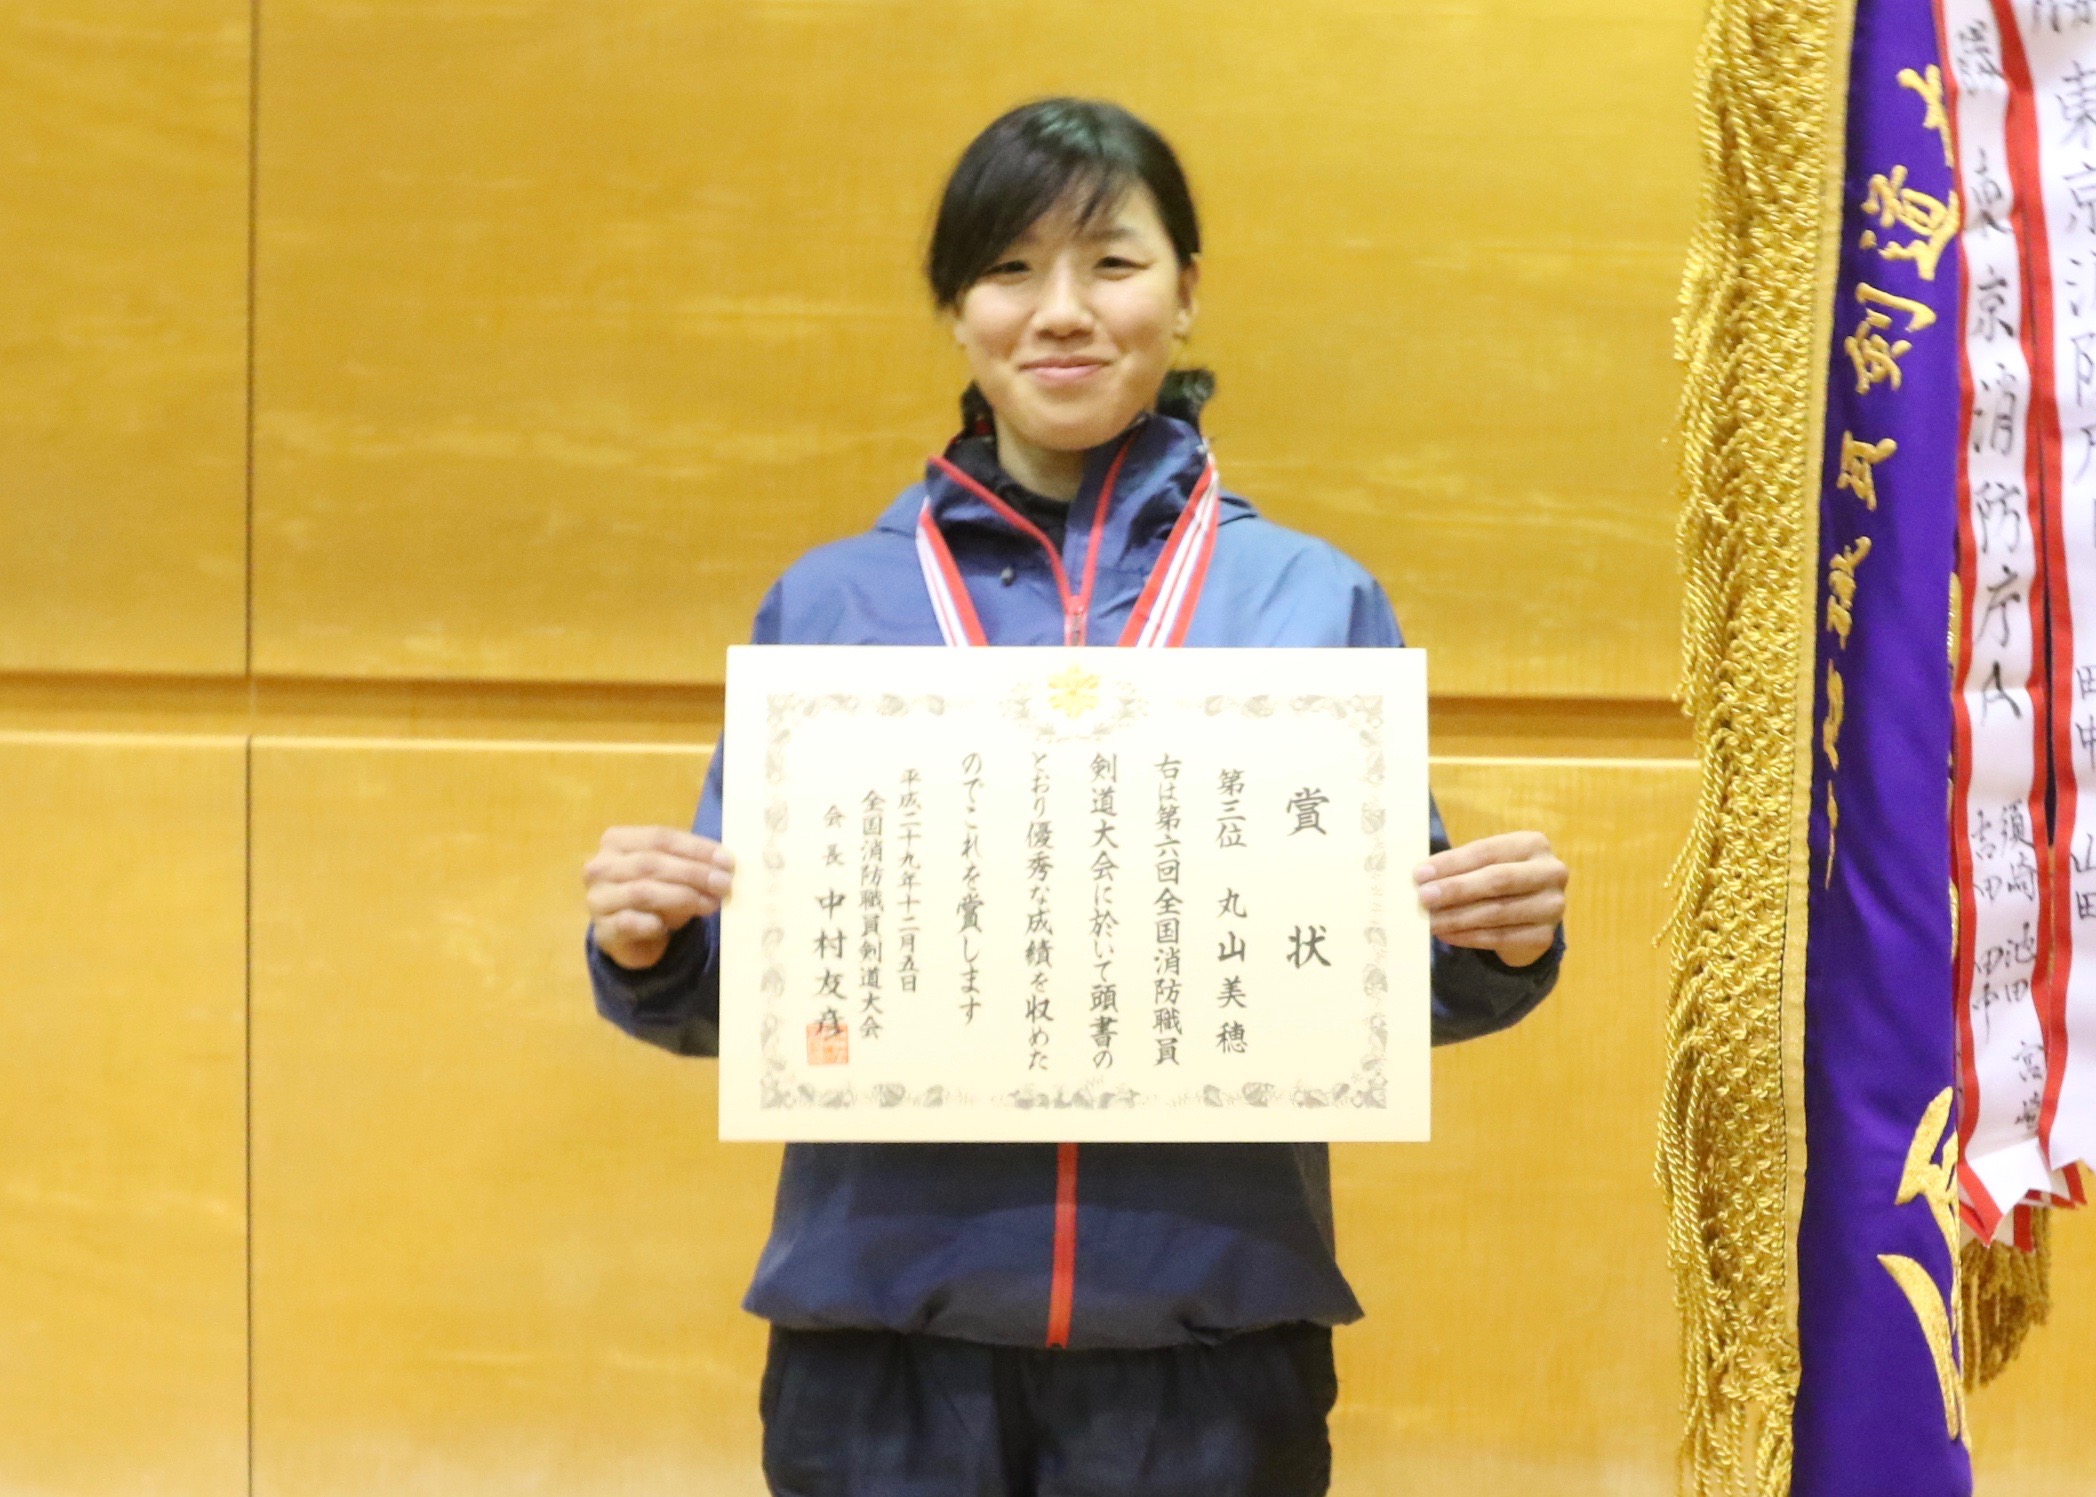 賞状
第三位 丸山美穂
右は第六回全国消防職員
剣道大会に於いて頭書の
とおり優秀な成績を収めた
のでこれを賞します
平成二十九年十二月五日
全国消防職員剣道大会
会長 中村友彦
東京消防庁
田中 山田
東京消防庁A
須崎 池田 宮崎
吉田 田中
員剣道大